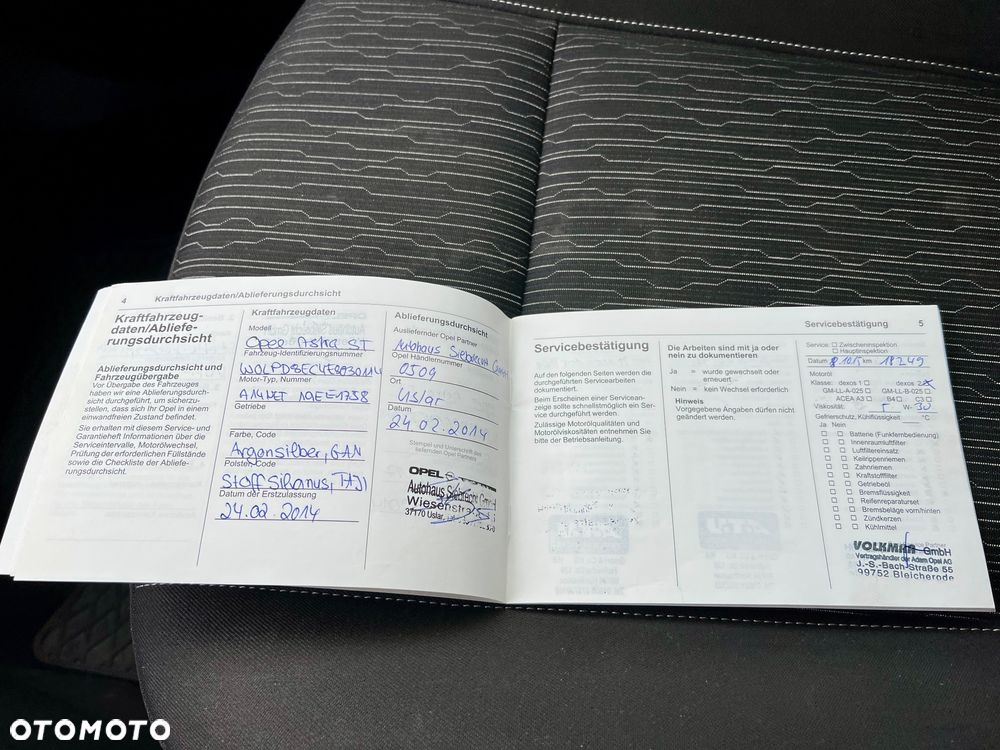 4 Kraftfahrzeugdaten/Ablieferungsdurchsicht
Kraftfahrzeug-
daten/Abliefe-
rungsdurchsicht
Ablieferungsdurchsicht und
Fahrzeugübergabe
Vor Übergabe des Fahrzeuges
haben wir eine Ablieferungsdurch-
sicht durchgeführt, um sicherzu-
stellen, dass sich Ihr Opel in einem
einwandfreien Zustand befindet.
Sie erhalten mit diesem Service- und
Garantieheft Informationen über die
Serviceintervalle, Motorölwechsel,
Prüfung der erforderlichen Füllstände
sowie die Checkliste der Abliefe-
rungsdurchsicht.
Kraftfahrzeugdaten
Modell
Opel Astra ST
Fahrzeug-Identifizierungsnummer
Motor-Typ, Nummer
A14NET
Getriebe
Farbe, Code
Argonsilber, GAN
Polster-Code
Stoff
Datum der Erstzulassung
24.02.2014
Ablieferungsdurchsicht
Ausliefernder Opel Partner
Autohaus Siebrecht GmbH
Opel Händlernummer
0509
Ort
Uslar
Datum
24.02.2014
Stempel und Unterschrift des
liefernden Opel Partners
OPEL
Autohaus Siebrecht GmbH
Wiesenstr.
37170 Uslar,
Servicebestätigung 5
Servicebestätigung
Auf den folgenden Seiten werden die
durchgeführten Servicearbeiten
dokumentiert.
Beim Erscheinen einer Servicean-
zeige sollte schnellstmöglich ein Ser-
vice durchgeführt werden.
Zulässige Motorölqualitäten und
Motorölviskositäten entnehmen Sie
bitte der Betriebsanleitung.
Die Arbeiten sind mit ja oder
nein zu dokumentieren
Ja = wurde gewechselt oder
erneuert
Nein = kein Wechsel erforderlich
Hinweis
Vorgegebene Angaben dürfen nicht
geändert werden.
Service: ☐ Zwischeninspektion
☐ Hauptinspektion
Datum km 18249
Motoröl
Klasse: dexos 1 ☐ dexos 2
GM-LL-A-025 ☐ GM-LL-B-025 ☐
ACEA A3 ☐ B4 ☐ C3 ☐
Viskosität: 5 W- 30
Gefrierschutz, Kühlflüssigkeit: ___ °C
Ja Nein
☐ ☐ Batterie (Funkfernbedienung)
☐ ☐ Innenraumluftfilter
☐ ☐ Luftfiltereinsatz
☐ ☐ Keilrippenriemen
☐ ☐ Zahnriemen
☐ ☐ Kraftstofffilter
☐ ☐ Getriebeöl
☐ ☐ Bremsflüssigkeit
☐ ☐ Reifenreparaturset
☐ ☐ Bremsbeläge vorn/hinten
☐ ☐ Zündkerzen
☐ ☐ Kühlmittel
GmbH
Vertragshändler der Adam Opel AG
J.-S.-Bach-Straße 55
99752 Bleicherode
OTOMOTO